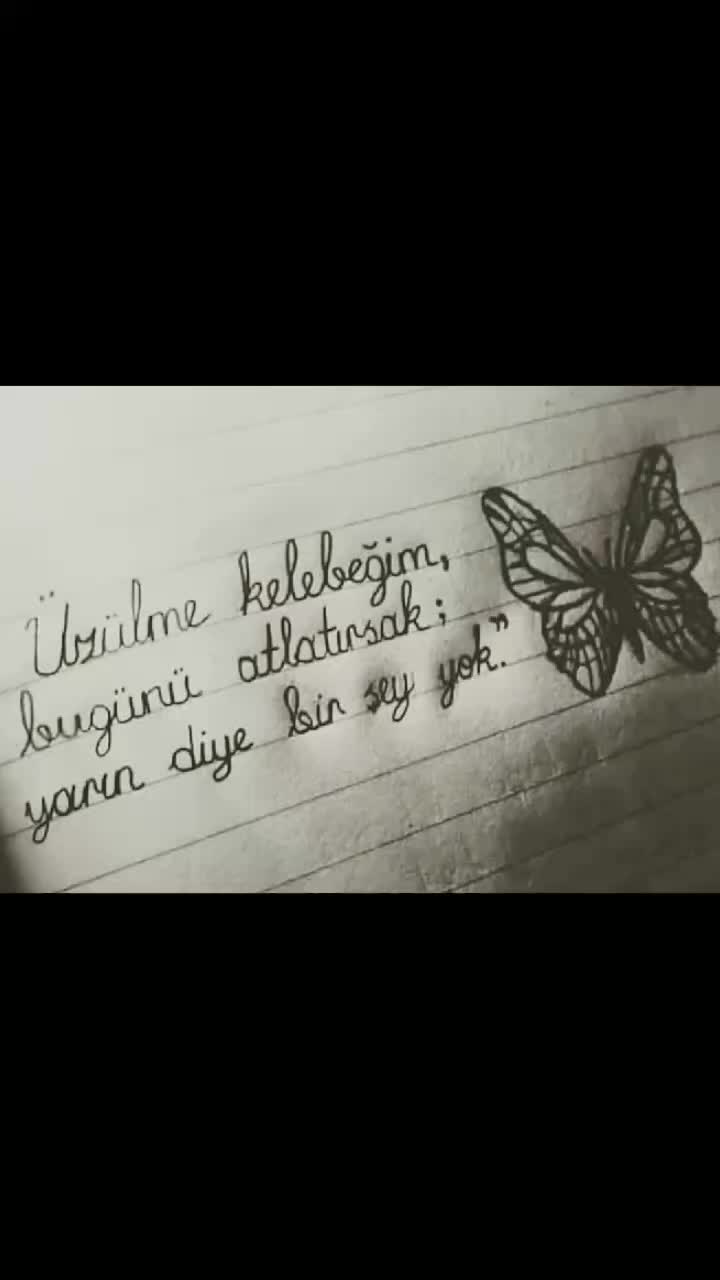 Üzülme kelebeğim,
bugünü atlatırsak;
yarın diye bir şey yok."